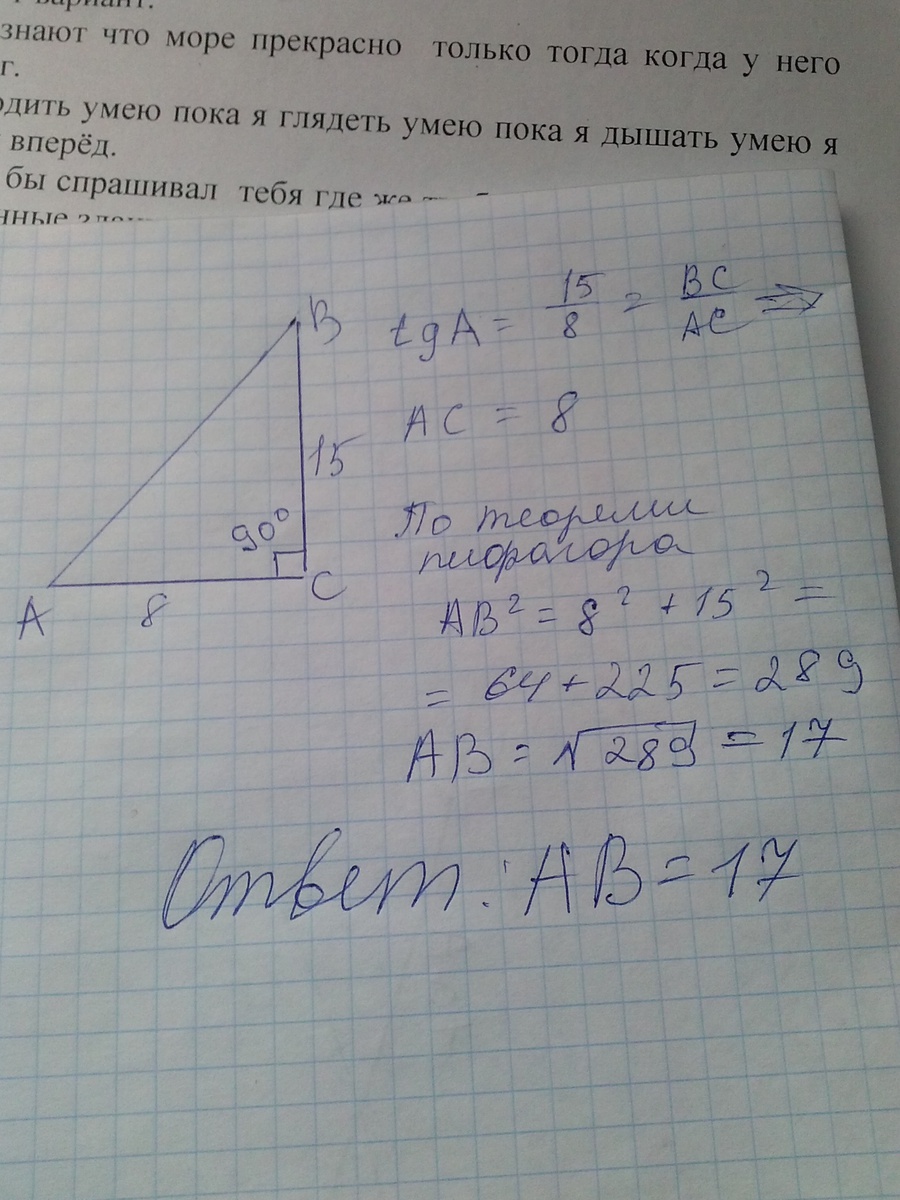 вариант.
знают что море прекрасно только тогда когда у него
г.
одить умею пока я глядеть умею пока я дышать умею я
вперёд.
бы спрашивал тебя где же
нные
B
15
90°
A
8
C
tgA = 15/8 = BC/AC ⇒
AC = 8
По теореми
пифагора
AB² = 8² + 15² =
= 64 + 225 = 289
AB = √289 = 17
Ответ: AB = 17